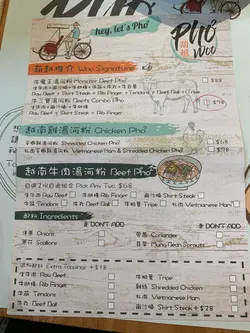 hey, let's Pho
Phở
Woo
越越推介 Woo Signature
牛魔王湯河粉 Monster Beef Pho
Raw Beef + Shirt Steak + Rib Finger + Tendons + Beef Ball + Tripe
牛三寶湯河粉 Beefy Combo Pho
Raw Beef + Shirt Steak + Rib Finger
越南雞湯河粉 Chicken Pho
手撕雞湯河粉 Shredded Chicken Pho
Vietnamese Ham & Shredded Chicken Pho
越南牛肉湯河粉 Beef Pho
Pick Any Two $68
生牛肉 Raw Beef
Shirt Steak
牛肋條 Rib Finger
牛筋 Tendons
牛丸 Beef Ball
牛柏葉 Tripe
Vietnamese Ham
配料 Ingredients
DON'T ADD
DON'T ADD
洋蔥 Onions
芫茜 Coriander
Scallions
芽菜 Mung Bean Sprouts
Extra Toppings +$18
生牛肉 Raw Beef
牛肋條 Rib Finger
牛筋 Tendons
牛丸 Beef Ball
牛柏葉 Tripe
雞絲 Shredded Chicken
Vietnamese Ham
Shirt Steak +$28